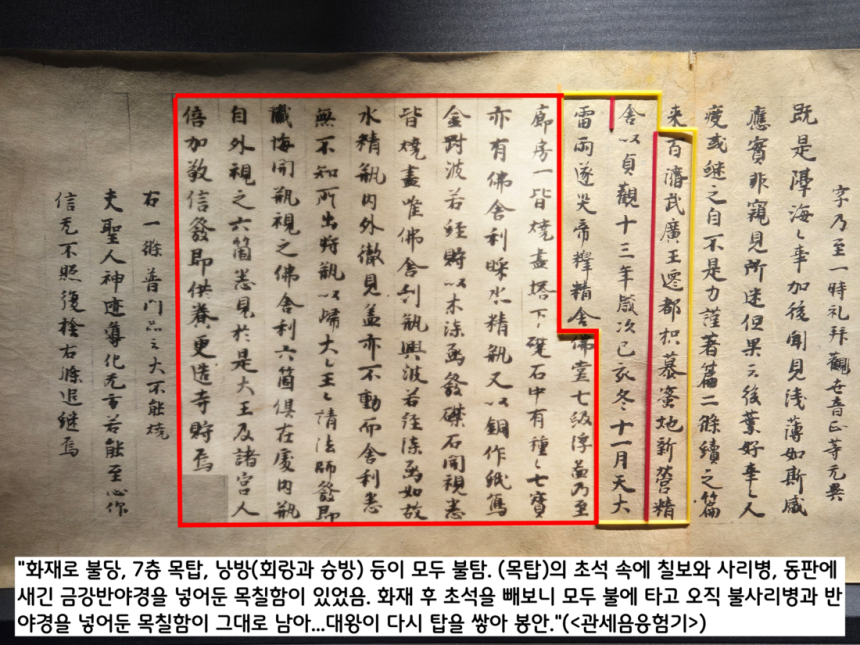 字乃至一時礼拜觀世音正等无異
既是隣海〻事加復聞見浅薄如斯感
應實非窺見所迷但果云後葉好事〻人
廋或継之自不是力謹著篇二條續之篇
末百濟武廣王遷都枳慕蜜地新營精
舎以貞觀十三年歲次己亥冬十一月天大
雷雨遂災帝釋精舎佛堂七級浮啚乃至
廊房一皆燒盡塔下礎石中有種〻七寶
亦有佛舎利睬水精瓶又以銅作紙寫
金剛波若經貯以木漆函發礎石開視悉
皆燒盡唯佛舎利瓶與波若経漆函如故
水精瓶内外徹見盖亦不動而舎利悉
無不知所出將瓶以歸大〻王〻請法師發即
懺悔開瓶視之佛舎利六箇俱在處内瓶
自外視之六箇悉見於是大王及諸宮人
倍加敬信發即供養更造寺貯焉
右一條普門品云火不能燒
夫聖人神迹導化无方若能至心仰
信无不照復捨右條追継焉
"화재로 불당, 7층 목탑, 낭방(회랑과 승방) 등이 모두 불탐. (목탑)의 초석 속에 칠보와 사리병, 동판에
새긴 금강반야경을 넣어둔 목칠함이 있었음. 화재 후 초석을 빼보니 모두 불에 타고 오직 불사리병과 반
야경을 넣어둔 목칠함이 그대로 남아...대왕이 다시 탑을 쌓아 봉안."(<관세음응험기>)